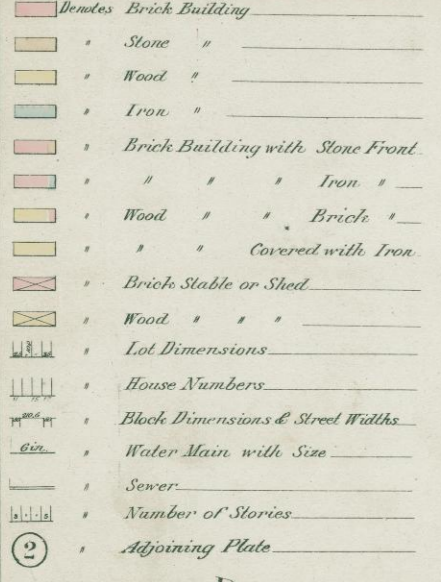 Denotes Brick Building
" Stone "
" Wood "
" Iron "
" Brick Building with Stone Front
" " " " Iron "
" Wood " " Brick "
" " " Covered with Iron
" Brick Stable or Shed
" Wood " " "
" Lot Dimensions
" House Numbers
210.6 " Block Dimensions & Street Widths
6 in. " Water Main with Size
" Sewer
" Number of Stories
2 " Adjoining Plate